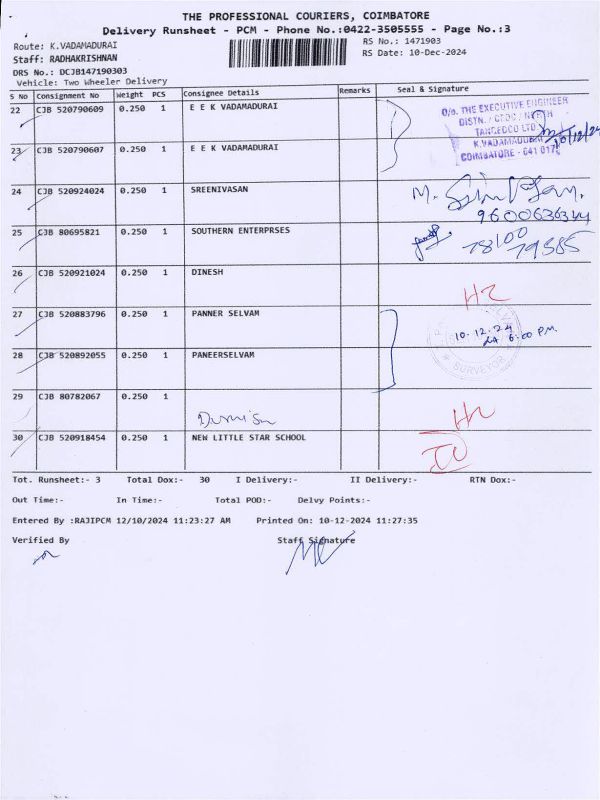 THE PROFESSIONAL COURIERS, COIMBATORE
Delivery Runsheet - PCM - Phone No.:0422-3505555 - Page No.:3
Route: K.VADAMADURAI RS No.: 1471903
Staff: RADHAKRISHNAN RS Date: 10-Dec-2024
DRS No.: DCJB147190303
Vehicle: Two Wheeler Delivery
S No Consignment No Weight PCS Consignee Details Remarks Seal & Signature
22 CJB 520790609 0.250 1 E E K VADAMADURAI
O/o. THE EXECUTIVE ENGINEER
DISTN. / CEDC / NORTH
TANGEDCO LTD
K.VADAMADURAI
COIMBATORE - 641 017
10/12/24
23 CJB 520790607 0.250 1 E E K VADAMADURAI
24 CJB 520924024 0.250 1 SREENIVASAN
M.
9600636344
25 CJB 80695821 0.250 1 SOUTHERN ENTERPRSES
78100
79585
26 CJB 520921024 0.250 1 DINESH
27 CJB 520883796 0.250 1 PANNER SELVAM
10-12-24
6:00 P.M.
SURVEYOR
28 CJB 520892055 0.250 1 PANEERSELVAM
29 CJB 80782067 0.250 1
30 CJB 520918454 0.250 1 NEW LITTLE STAR SCHOOL
Tot. Runsheet:- 3 Total Dox:- 30 I Delivery:- II Delivery:- RTN Dox:-
Out Time:- In Time:- Total POD:- Delvy Points:-
Entered By :RAJIPCM 12/10/2024 11:23:27 AM Printed On: 10-12-2024 11:27:35
Verified By Staff Signature